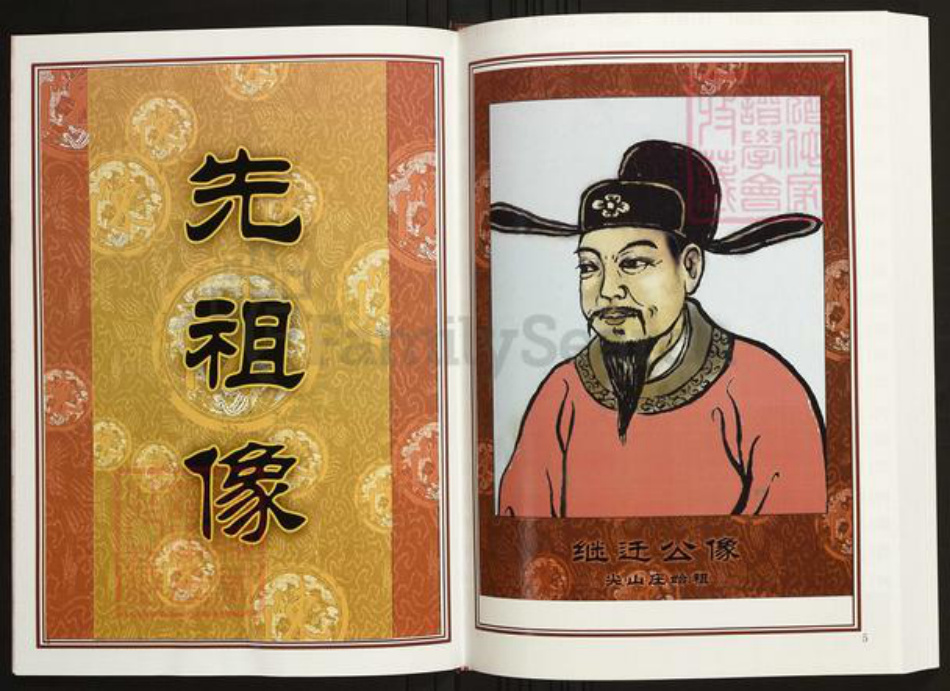 先
祖
像
继迁公像
尖山庄始祖
FamilySe
5